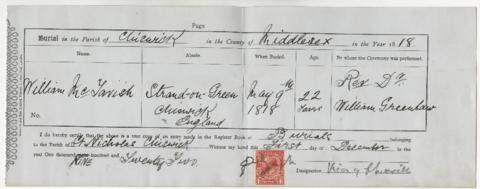 Page
Burial in the Parish of Chiswick in the County of Middlesex in the Year 1818.
Name. Abode. When Buried. Age. By whom the Ceremony was performed.
William McTavish Strand-on-Green Chiswick England May 9th 1818 22 Years Rev Dr. William Greenlaw
No.
I do hereby certify that the above is a true copy of an entry made in the Register Book of Burials belonging
to the Parish of St Nicholas Chiswick Witness my hand this First day of December in the
year One thousand nine hundred and Twenty Two.
Designation Vicar of Chiswick